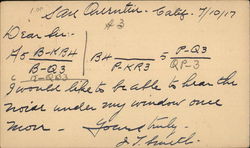 San Quentin - Calif. 7/10/17
#3
Dear Sir:-
4/5 B-KB4 / B-Q3 B4 / P-KR3 5 P-Q3 / QP-3
I would like to be able to hear the
noise under my window once
more - Yours truly -
J. T. Smith.